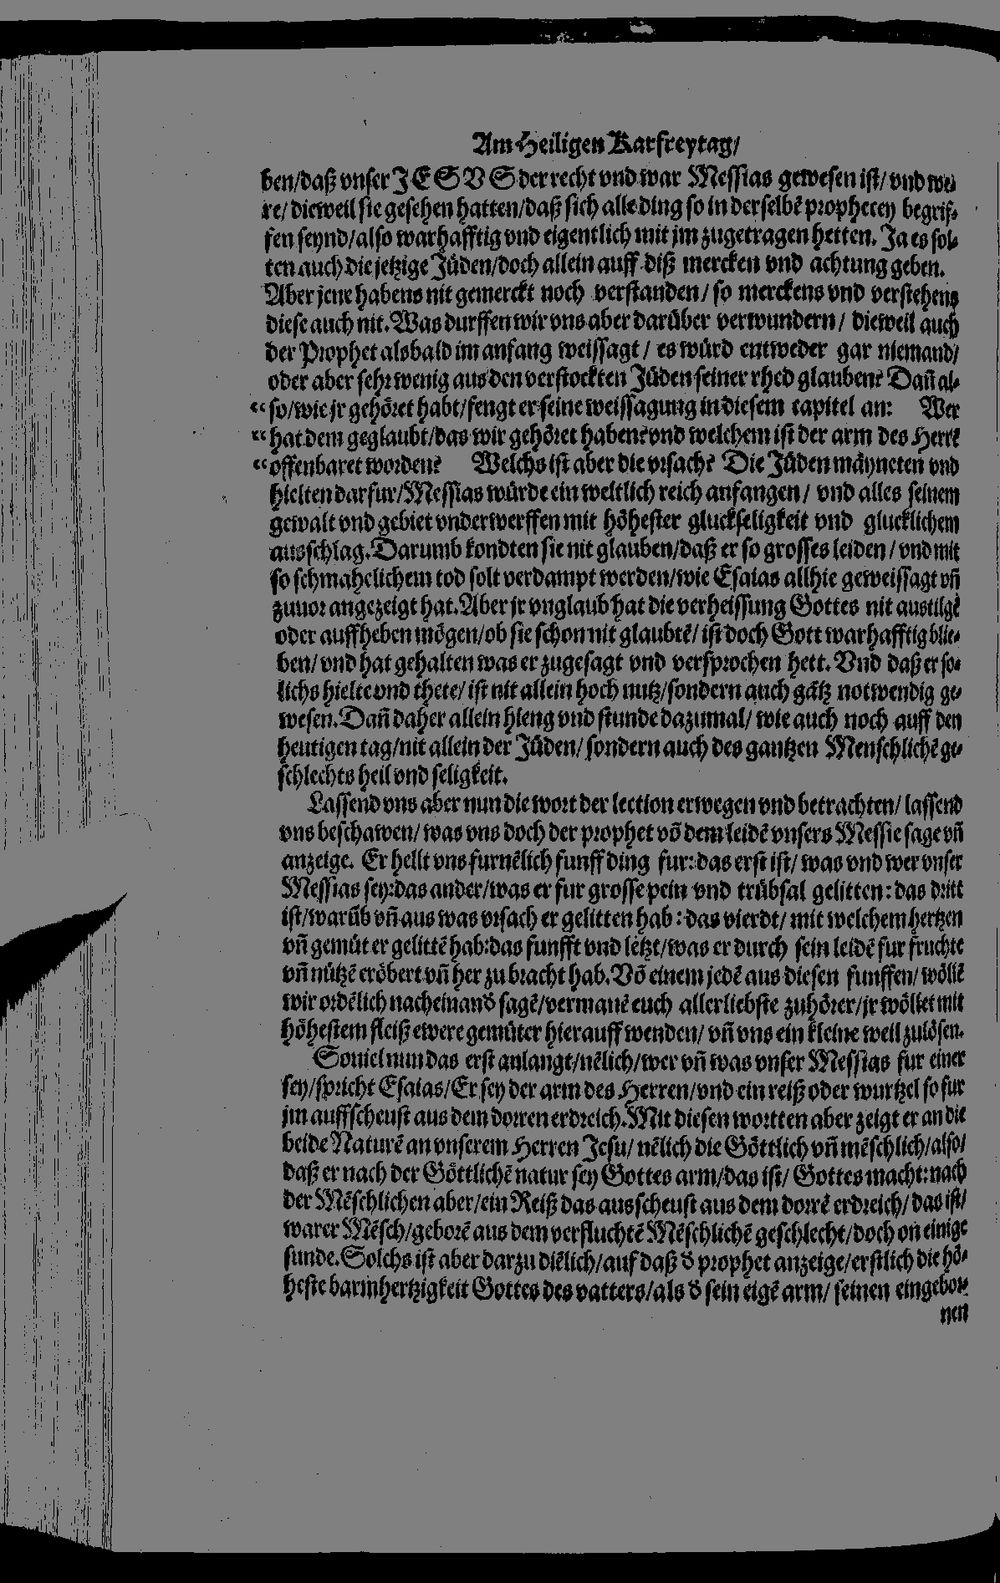 Am Heiligen Karfreytag/
ben/daß vnser JESVS der recht vnd war Messias gewesen ist/ vnd we-
re/ dieweil sie gesehen hatten/daß sich alle ding so in derselbẽ prophecey begrif-
fen seynd/also warhafftig vnd eigentlich mit jm zugetragen hetten. Ja es sol-
ten auch die jetzige Jüden/doch allein auff diß mercken vnd achtung geben.
Aber jene habens nit gemerckt noch verstanden/ so merckens vnd verstehens
diese auch nit. Was durffen wir vns aber darüber verwundern/ dieweil auch
der Prophet alsbald im anfang weissagt/ es würd entweder gar niemand/
oder aber sehr wenig aus den verstockten Jüden seiner rhed glauben? Dañ al-
"so/wie jr gehöret habt/fengt er seine weissagung in diesem capitel an: Wer
"hat dem geglaubt/das wir gehöret haben? vnd welchem ist der arm des Herrẽ
"offenbaret worden? Welchs ist aber die vrsach? Die Jüden mäyneten vnd
hielten darfur/Messias würde ein weltlich reich anfangen/ vnd alles seinem
gewalt vnd gebiet vnderwerffen mit höhester gluckseligkeit vnd glucklichem
ausschlag. Darumb kondten sie nit glauben/daß er so grosses leiden/ vnd mit
so schmahelichem tod solt verdampt werden/wie Esaias allhie geweissagt vñ
zuuor angezeigt hat. Aber jr vnglaub hat die verheissung Gottes nit austilgẽ
oder auffheben mögen/ob sie schon nit glaubtẽ/ ist doch Gott warhafftig blie-
ben/ vnd hat gehalten was er zugesagt vnd versprochen hett. Vnd daß er so-
lichs hielte vnd thete/ ist nit allein hoch nutz/sondern auch gãtz notwendig ge-
wesen. Dañ daher allein hieng vnd stunde dazumal/ wie auch noch auff den
heutigen tag/nit allein der Jüden/ sondern auch des gantzen Menschlichẽ ge-
schlechts heil vnd seligkeit.
Lassend vns aber nun die wort der lection erwegen vnd betrachten/ lassend
vns beschawen/ was vns doch der prophet võ dem leidẽ vnsers Messie sage vñ
anzeige. Er hellt vns furnẽlich funff ding fur: das erst ist/ was vnd wer vnser
Messias sey: das ander/was er fur grosse pein vnd trübsal gelitten: das dritt
ist/warũb vñ aus was vrsach er gelitten hab: das vierdt/ mit welchem hertzen
vñ gemüt er gelittẽ hab: das funfft vnd letzt/was er durch sein leidẽ fur fruchte
vñ nützẽ eröbert vñ her zu bracht hab. Võ einem jedẽ aus diesen funffen/ wöllẽ
wir ordẽlich nacheinanď sagẽ/vermanẽ euch allerliebste zuhörer/jr wöllet mit
höhestem fleiß ewere gemüter hierauff wenden/ vñ vns ein kleine weil zulösen.
Souiel nun das erst anlangt/nẽlich/wer vñ was vnser Messias fur einer
sey/spricht Esaias/Er sey der arm des Herren/vnd ein reiß oder wurtzel so fur
jm auffscheust aus dem dorren erdreich. Mit diesen wortten aber zeigt er an die
beide Naturẽ an vnserem Herren Jesu/ nẽlich die Göttlich vñ mẽschlich/also/
daß er nach der Göttlichẽ natur sey Gottes arm/das ist/ Gottes macht: nach
der Mẽschlichen aber/ein Reiß das ausscheust aus dem dorrẽ erdreich/ das ist/
warer Mẽsch/geborẽ aus dem verfluchtẽ Mẽschlichẽ geschlecht/doch on einige
sunde. Solchs ist aber darzu diẽlich/auf daß ď prophet anzeige/erstlich die hö-
heste barmhertzigkeit Gottes des vatters/als ď sein eigẽ arm/ seinen eingebor-
nen